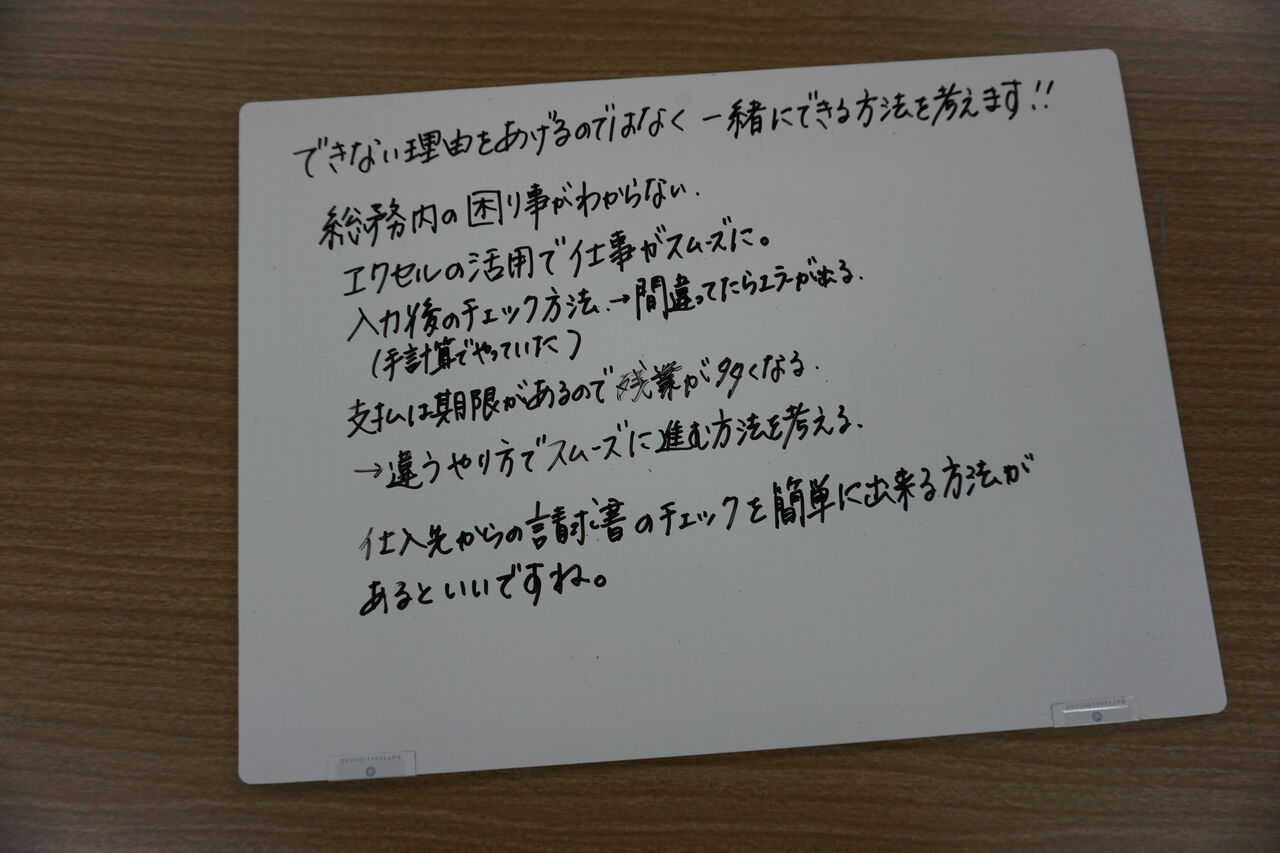 できない理由をあげるのではなく 一緒にできる方法を考えます!!
総務内の困り事がわからない.
エクセルの活用で仕事がスムーズに。
入力後のチェック方法.→間違ってたらエラーが出る.
(手計算でやっていた)
支払は期限があるので残業が多くなる.
→違うやり方でスムーズに進む方法を考える.
仕入先からの請求書のチェックを簡単に出来る方法が
あるといいですね。